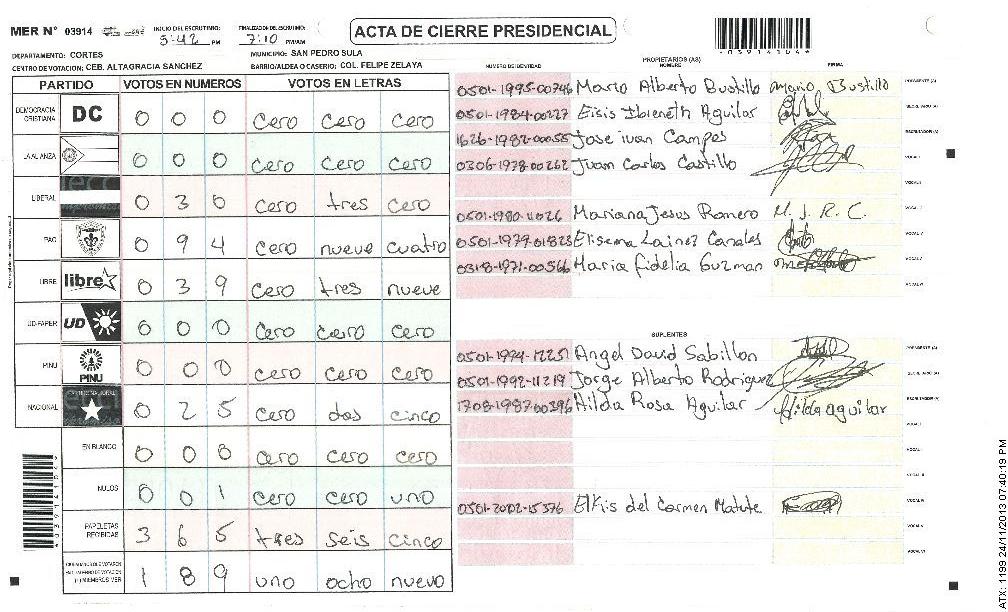 MER N° 03914
INICIO DEL ESCRUTINIO: 5:42 PM
FINALIZACION DEL ESCRUTINIO: 7:10 PM/AM
ACTA DE CIERRE PRESIDENCIAL
*03914104*
DEPARTAMENTO: CORTES
MUNICIPIO: SAN PEDRO SULA
CENTRO DE VOTACION: CEB. ALTAGRACIA SANCHEZ
BARRIO/ALDEA O CASERIO: COL. FELIPE ZELAYA
PARTIDO VOTOS EN NUMEROS VOTOS EN LETRAS
DEMOCRACIA CRISTIANA DC 0 0 0 Cero Cero Cero
LA ALIANZA 0 0 0 Cero Cero Cero
LIBERAL 0 3 0 Cero tres Cero
PAC 0 9 4 Cero nueve cuatro
LIBRE libre 0 3 9 Cero tres nueve
UD-FAPER UD 0 0 0 Cero Cero Cero
PINU PINU 0 0 0 Cero Cero Cero
NACIONAL 0 2 5 Cero dos cinco
EN BLANCO 0 0 0 Cero Cero Cero
NULOS 0 0 1 Cero Cero uno
PAPELETAS RECIBIDAS 3 6 5 tres seis cinco
1 8 9 uno ocho nuevo
PROPIETARIOS (AS)
NUMERO DE IDENTIDAD NOMBRE FIRMA
0501-1995-00746 Mario Alberto Bustillo Mario Bustillo PRESIDENTE (A)
0501-1984-00227 Eisis Ibieneth Aguilar SECRETARIO (A)
1626-1982-00055 Jose ivan Campos ESCRUTADOR (A)
0306-1978-00262 Juan Carlos Castillo VOCAL I
VOCAL II
0501-1980-11026 Mariana Jesus Romero M. J. R. C.
0501-1979-01823 Elisema Lainez Canales
0318-1971-00566 Maria fidelia Guzman
SUPLENTES
0501-1994-12251 Angel David Sabillon PRESIDENTE (A)
0501-1992-11219 Jorge Alberto Rodriguez SECRETARIO (A)
1708-1987-00396 Hilda Rosa Aguilar Hilda aguilar ESCRUTADOR (A)
VOCAL I
VOCAL II
VOCAL III
0501-2002-15376 Elkis del Carmen Matute
ATX: 1199 24/11/2013 07:40:19 PM